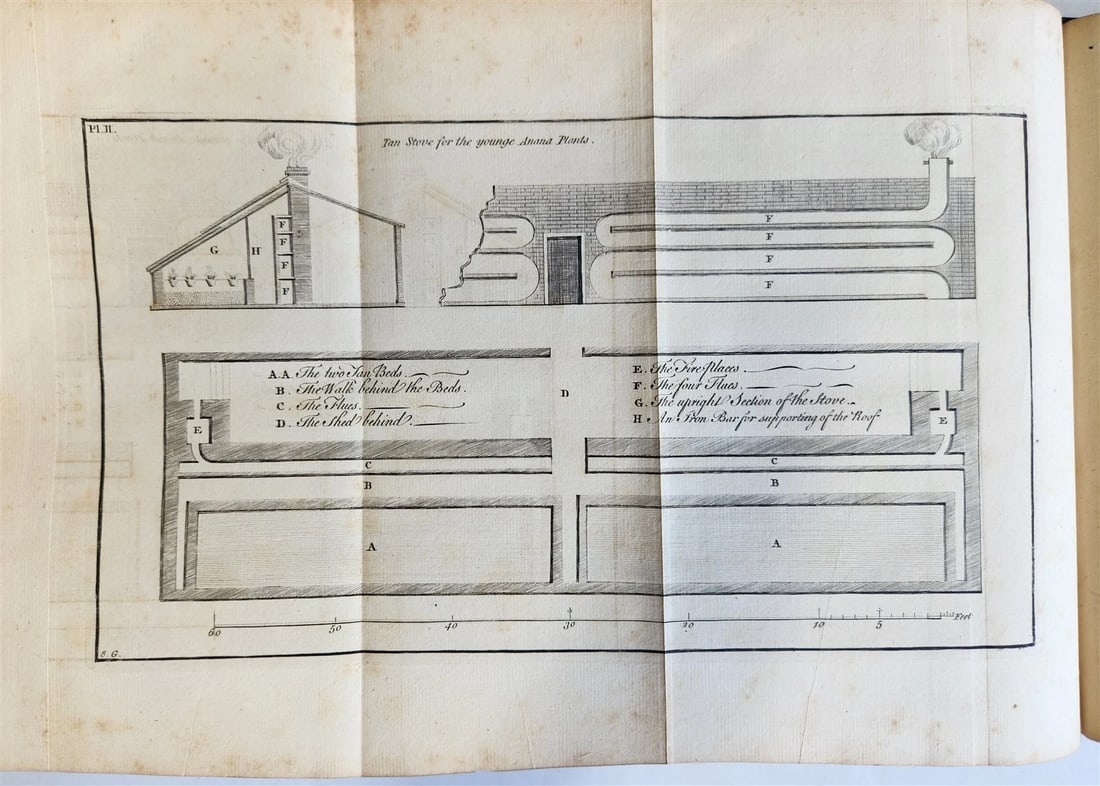 Pl. II.
Tan Stove for the younge Anana Plants.
G
H
F
F
F
F
F
F
F
F
A.A. The two Tan Beds.
B. The Walk behind the Beds.
C. The Flues.
D. The Shed behind.
D
E. The Fire places.
F. The four Flues.
G. The upright Section of the Stove.
H An Iron Bar for supporting of the Roof
E
E
C
C
B
B
A
A
60 50 40 30 20 10 5 Feet
S. G.